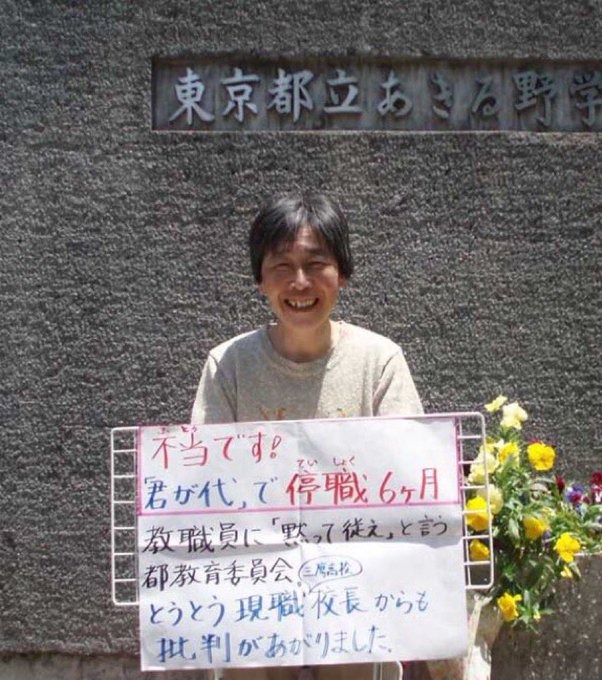 東京都立あきる野学
ふとう
不当です!
ていしょく
「君が代」で停職6ヶ月
教職員に「黙って従え」と言う
都教育委員会。
三鷹高校
とうとう現職校長からも
批判があがりました。